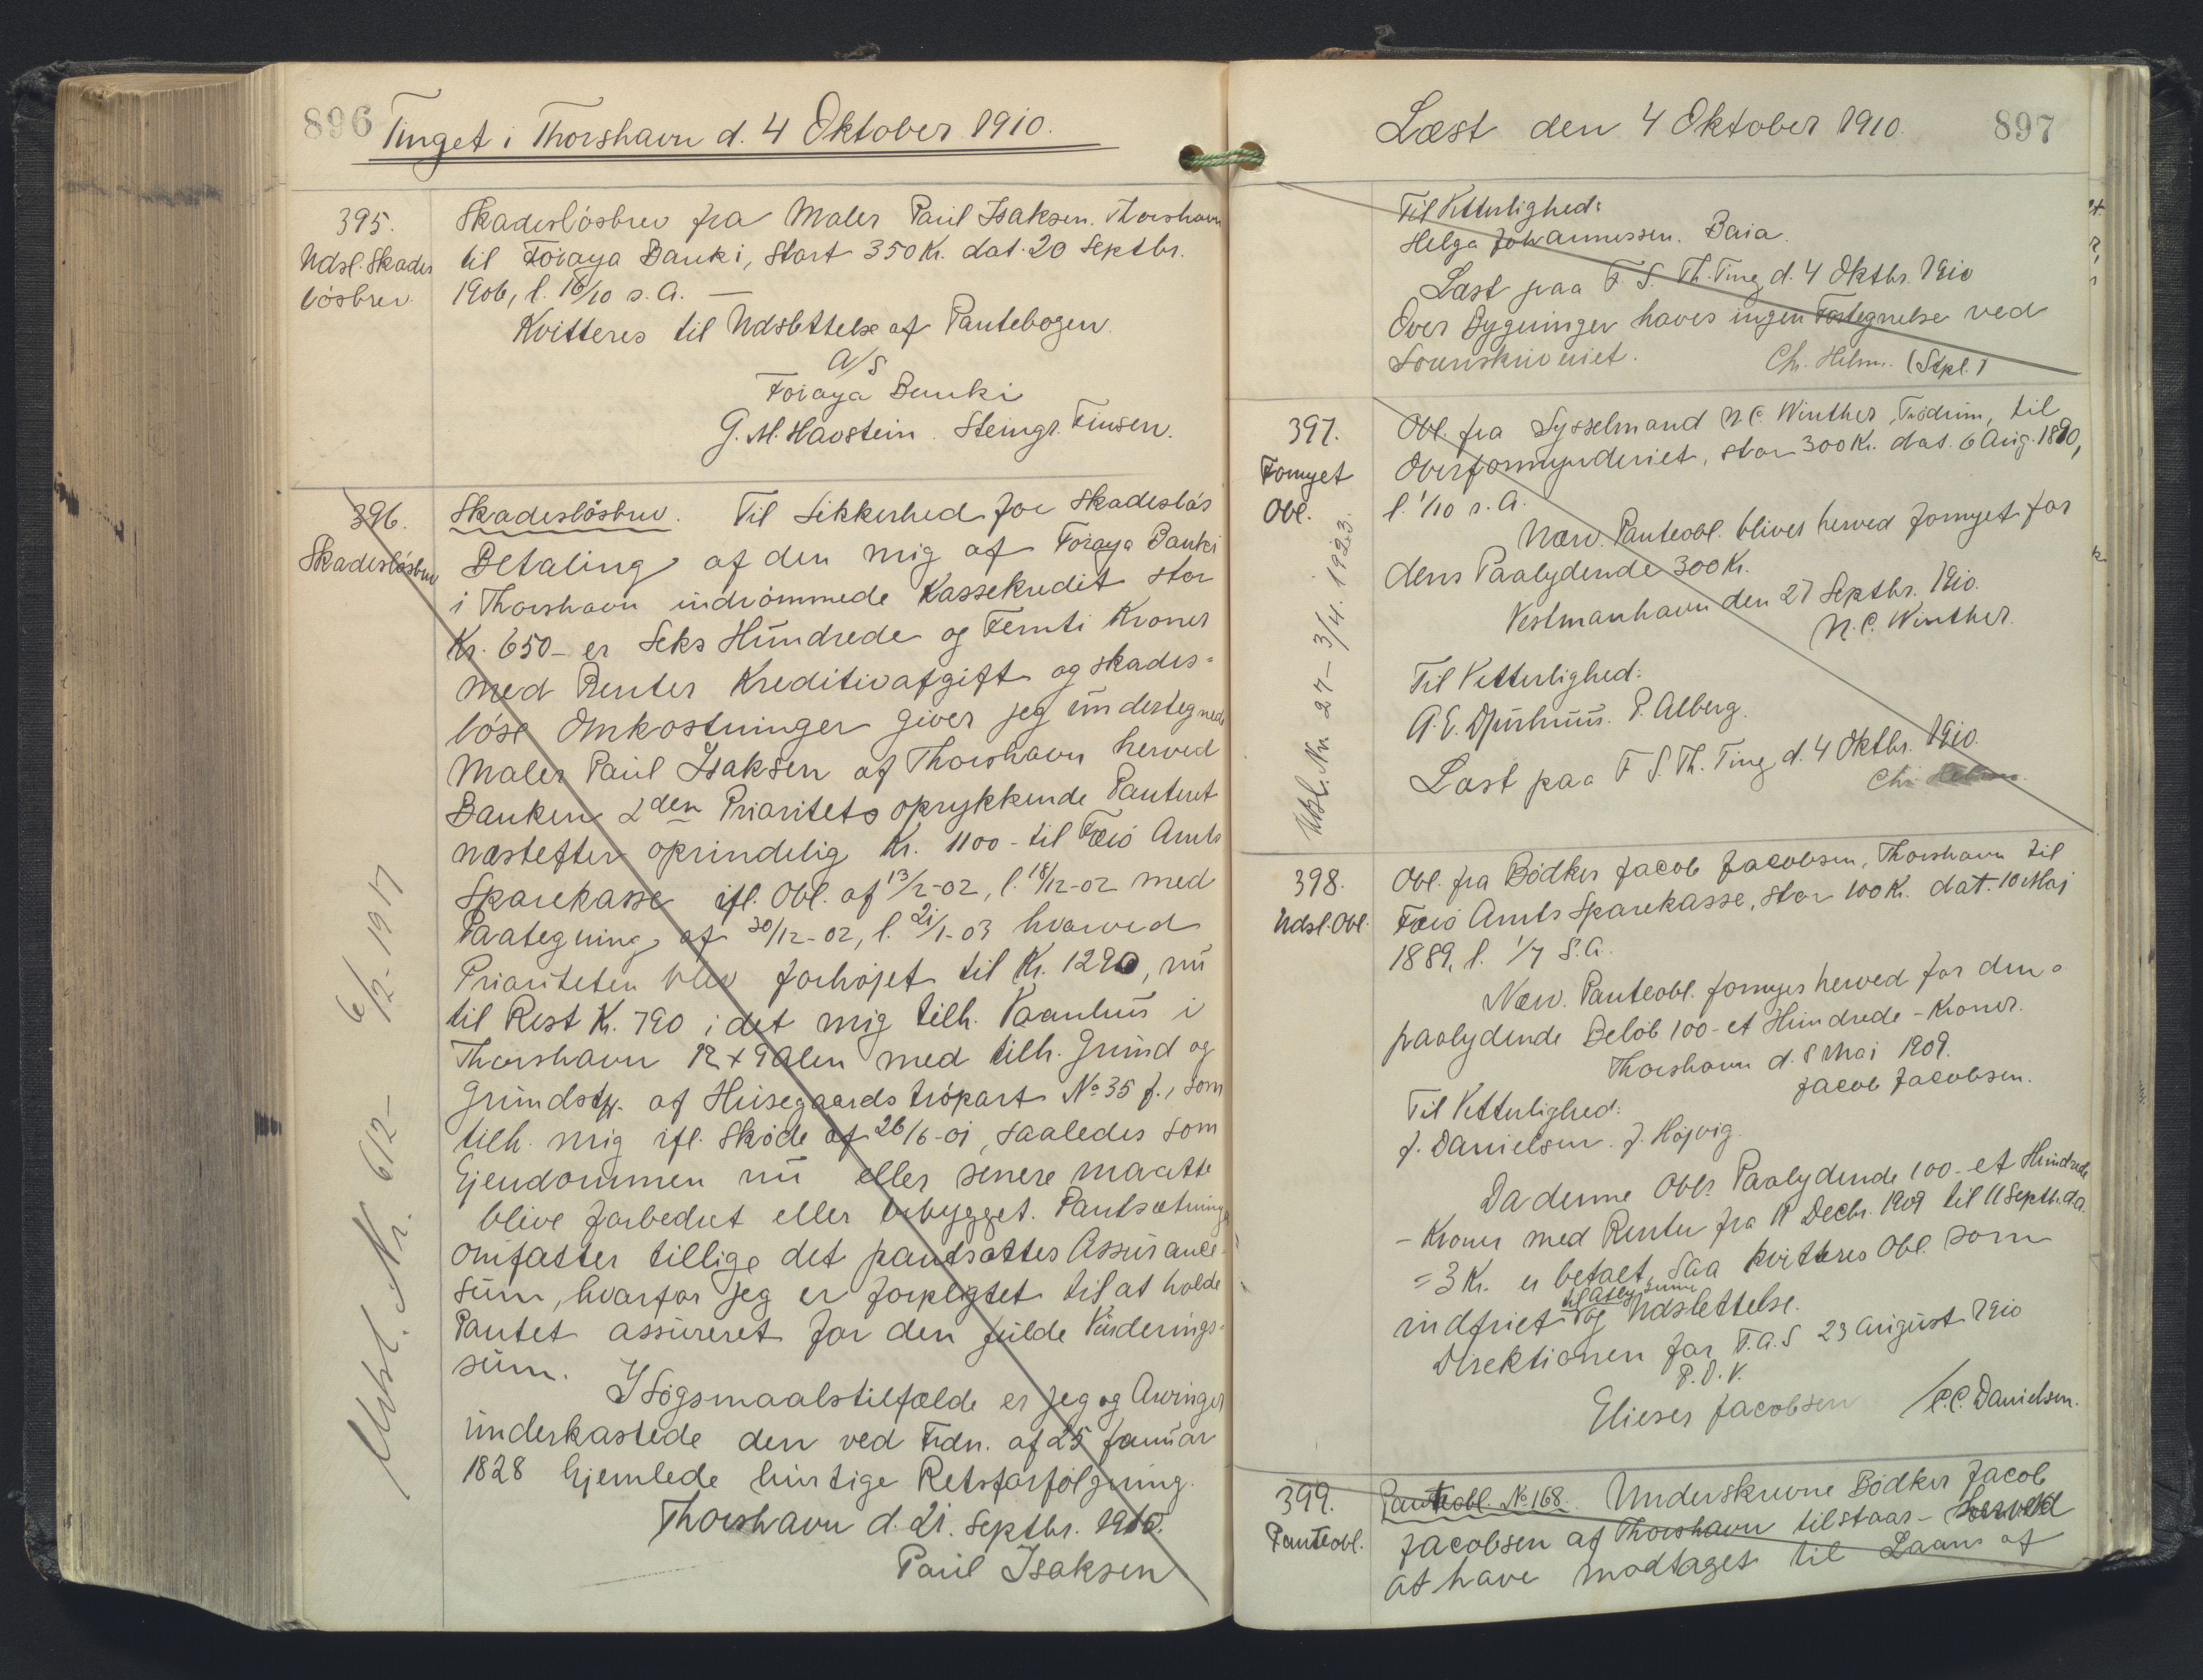 896
Tinget i Thorshavn d. 4 Oktober 1910.
395.
Udsl. Skades
lösbrev.
Skadeslösbrev fra Maler Paul Isaksen. Thorshavn
til Föroya Banki, stort 350 Kr. dat. 20 Septbr.
1906, l. 16/10 s. A. —
Kvitteres til Udslettelse af Pantebogen.
A/S
Föroya Banki
G. M. Havstein. Steingr. Einsen.
396.
Skadeslösbrev
Skadeslösbrev. Til Sikkerhed for Skadeslös
Betaling af den mig af Föroya Banki
i Thorshavn indrömmede Kassekredit stor
Kr. 650 - er Seks Hundrede og Femti Kroner
med Renter Kreditivafgift og skades=
löse Omkostninger giver jeg undertegnede
Maler Paul Isaksen af Thorshavn herved
Banken 2den Prioritets oprykkende Panteret
næstefter oprindelig Kr. 1100 - til Færö Amts
Sparekasse ifl. Obl. af 13/12-02, l. 18/12-02 med
Paategning af 30/12-02, l. 21/1-03 hvorved
Prioriteten blev forhöjet til Kr. 1290, nu
til Rest Kr. 790 i det mig tilh. Vaanhus i
Thorshavn 12 x 9 Alen med tilh. Grund og
Grundst. af Husegaards tröpart No 35 f., som
tilh. mig ifl. Sköde af 26/6-01, saaledes som
Ejendommen nu eller senere maatte
blive forbedret eller bebygget. Pantsætningen
omfatter tillige det pantsattes Assurance
sum, hvorfor jeg er forpligtet til at holde
Pantet assureret for den fulde Vurderings=
sum.
I Sögsmaalstilfælde er jeg og Arvinger
underkastede den ved Frdn. af 25 Januar
1828 hjemlede hurtige Retsforfölgning.
Thorshavn d. 21. Septbr. 1910.
Paul Isaksen
Udsl. Nr. 612 - 6/12-1917
Læst den 4 Oktober 1910.
897
Til Vitterlighed:
Helga Johannessen. Baia.
Læst paa F. S. Th. Ting d. 4 Oktbr. 1910
Over Bygninger haves ingen Fortegnelse ved
Sorenskriveriet. Ch. Helm. (Stpl.)
397.
Fornyet
Obl.
Udsl. Nr. 27 - 3/4. 1923.
Obl. fra Sysselmand N. C. Winther, til
Overformynderiet, stor 300 Kr. dat. 6 Aug. 1890,
l. 1/10 s. A.
Nærv. Panteobl. bliver herved fornyet for
dens Paalydende 300 Kr.
Vestmanhavn den 27 Septbr. 1910.
N. C. Winther.
Til Vitterlighed:
A. E. Djurhuus. P. Alberg.
Læst paa F. S. Th. Ting d. 4 Oktbr. 1910.
Chr. Helm.
398.
Udsl. Obl.
Obl. fra Bödker Jacob Jacobsen, Thorshavn til
Færö Amts Sparekasse, stor 100 Kr. dat. 10 Maj
1889, l. 1/7 s. A.
Nærv. Panteobl. fornyes herved for den
paalydende Belöb 100 - et Hundrede - Kroner.
Thorshavn d. 8 Mai 1909.
Jacob Jacobsen.
Til Vitterlighed:
J. Danielsen. J. Höjvig.
Da denne Obls Paalydende 100 - et Hundrede
- Kroner med Renter fra 11 Decbr. 1909 til 11 Septb. d.A.
= 3 Kr. er betalt, saa kvitteres Obl. som
indfriet til Aflysning og Udslettelse.
Direktionen for F. A. S 23 August 1910
P. D. V.
Elieser Jacobsen / C. C. Danielsen.
399.
Panteobl.
Panteobl. No 168. Underskrevne Bödker Jacob
Jacobsen af Thorshavn tilstaar - herved
at have modtaget til Laans af